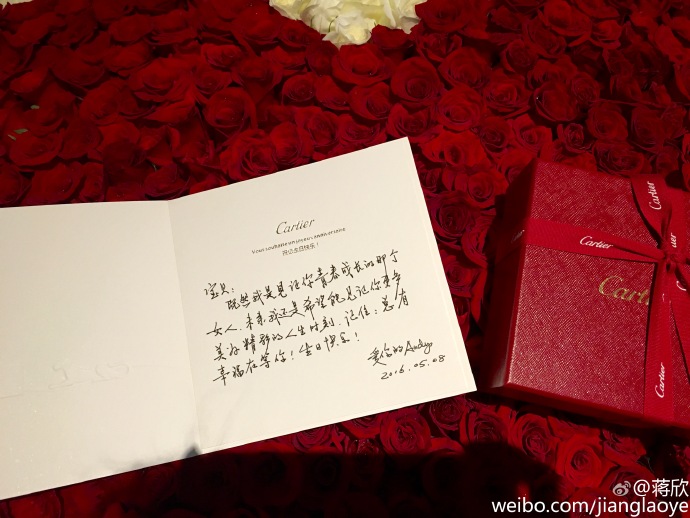 Cartier
Vous souhaite un joyeux anniversaire
祝您生日快乐！
宝贝：
既然我是见证你青春成长的那个
女人，未来我还是希望能见证你更多
美好精彩的人生时刻。记住：总有
幸福在等你！生日快乐！
爱你的Andy
2016.05.08
Cartier
Cartier
Cartier
Cartier
Cartier
@蒋欣
weibo.com/jianglaoye